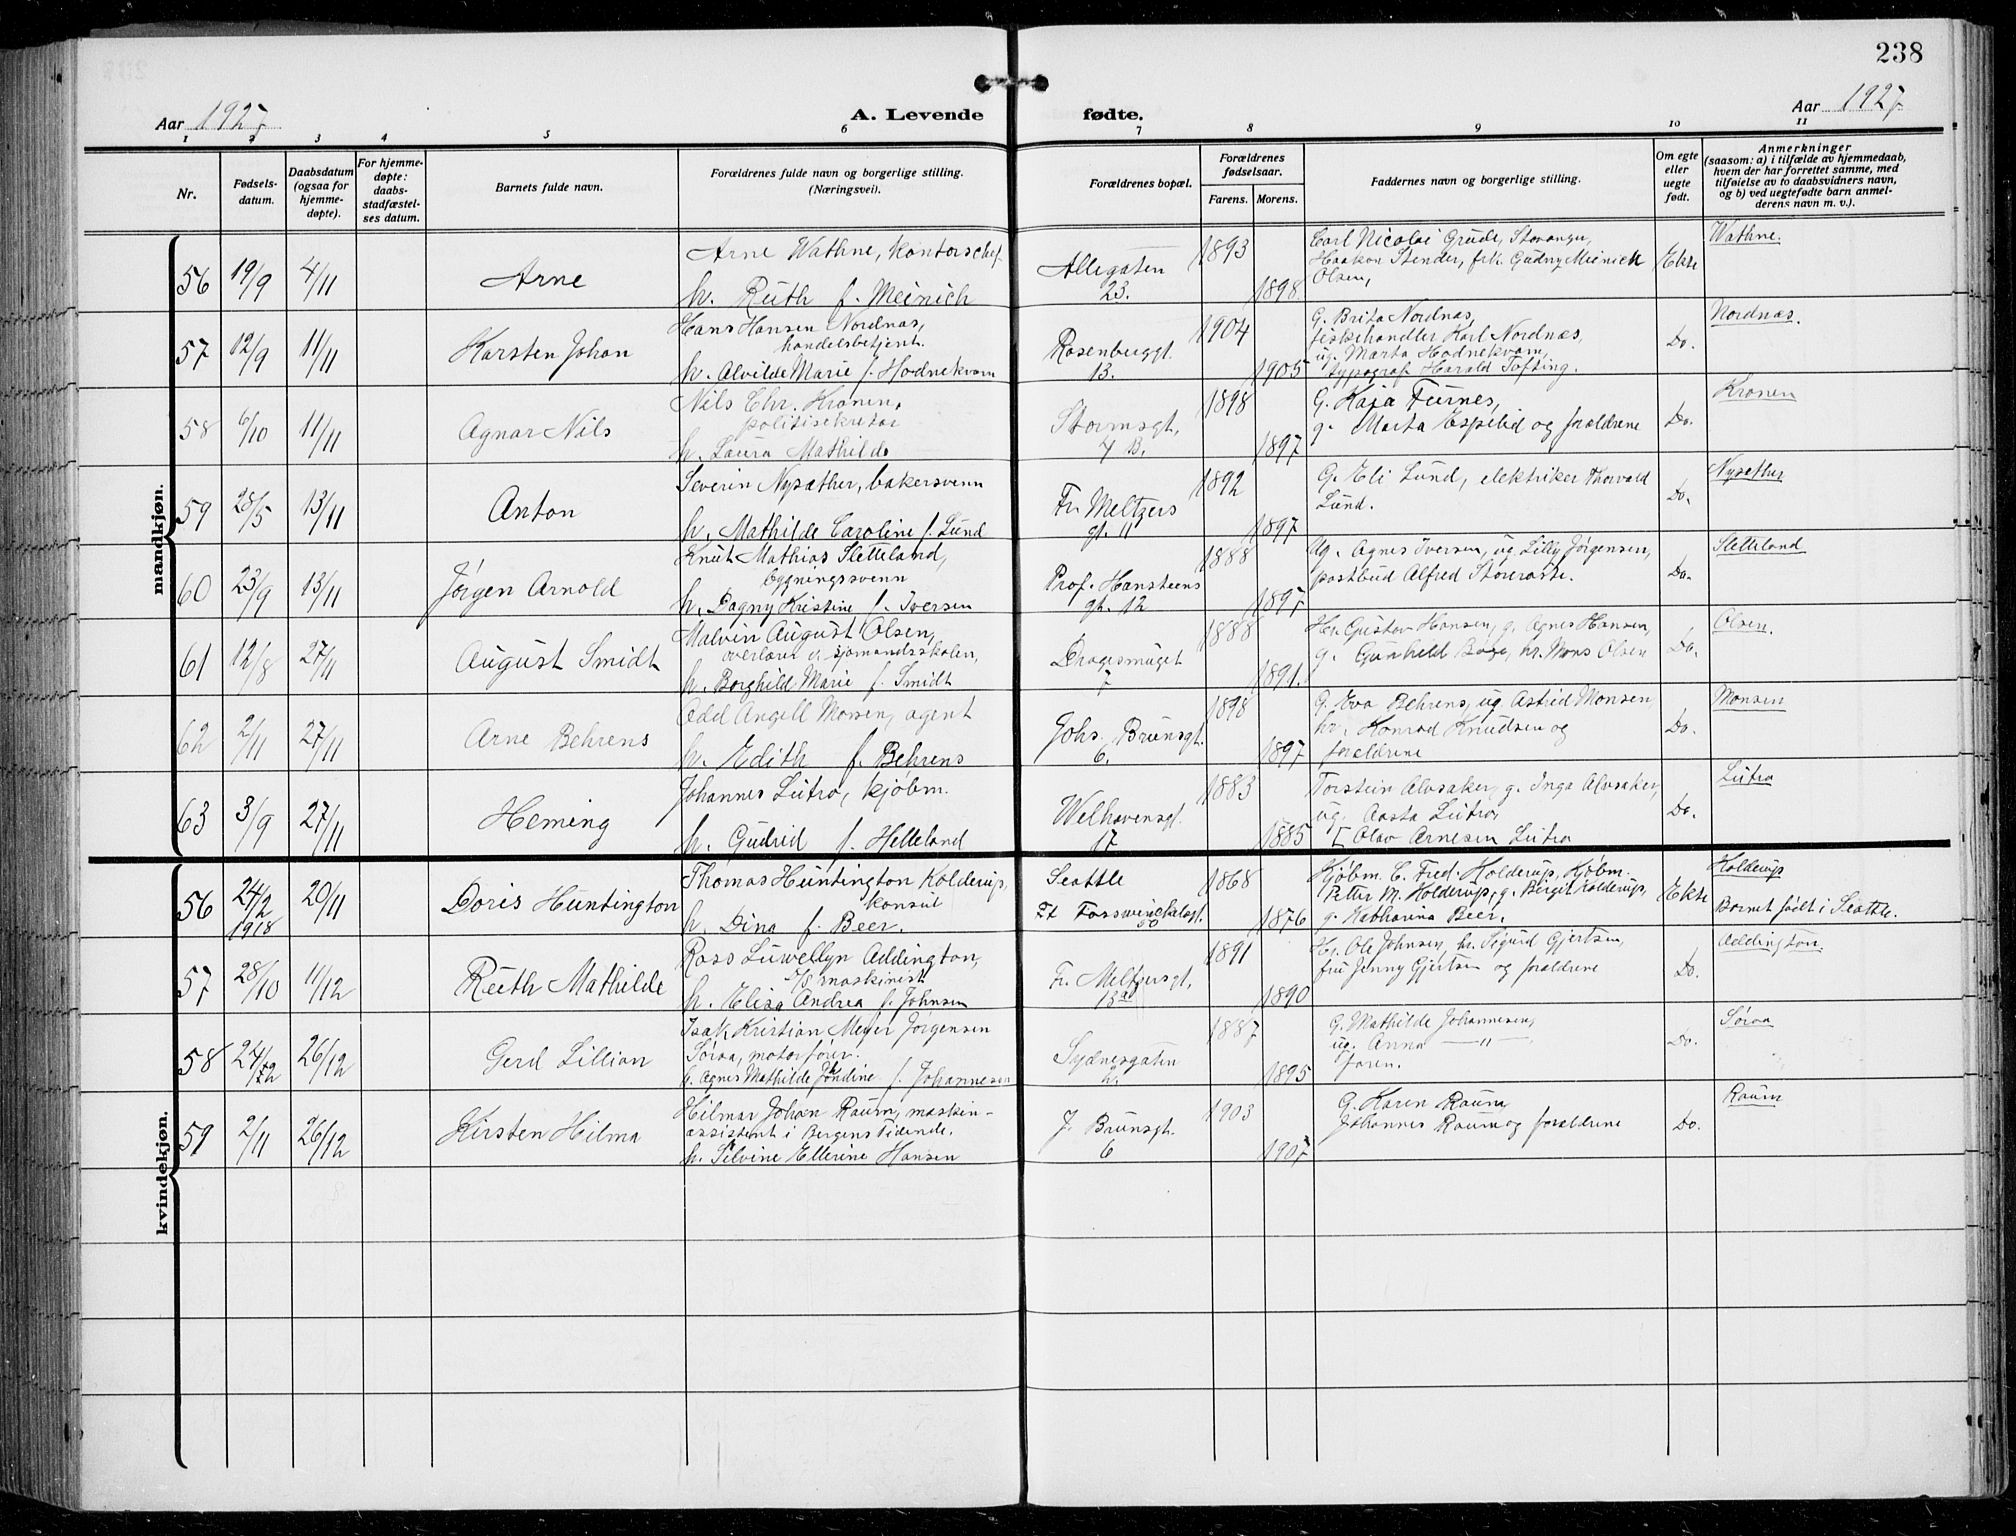 238
Aar 1927
A. Levende fødte.
Aar 1927
1 2 3 4 5 6 7 8 9 10 11
Nr.
Fødsels-
datum.
Daabsdatum
(ogsaa for
hjemme-
døpte).
For hjemme-
døpte:
daabs-
stadfæstel-
ses datum.
Barnets fulde navn.
Forældrenes fulde navn og borgerlige stilling.
(Næringsvei).
Forældrenes bopæl.
Forældrenes
fødselsaar.
Farens. Morens.
Faddernes navn og borgerlige stilling.
Om egte
eller
uegte
født.
Anmerkninger
(saasom: a) i tilfælde av hjemmedaab,
hvem der har forrettet samme, med
tilføielse av to daabsvidners navn,
og b) ved uegtefødte barn anmel-
derens navn m. v.).
mandkjøn.
56 19/9 4/11 Arne
Arne Wathne, kontorschef
h. Ruth f. Meinich
Allegaten
23.
1893 1898
Carl Nicolai Grude, Stavanger,
Haakon Stender, frk. Gudny Meinich
Olsen,
Ekte
Wathne.
57 12/9 11/11 Karsten Johan
Hans Hansen Nordnæs,
handelsbetjent.
h. Alvilde Marie f. Hodnekvam
Rosenberggt.
13.
1904 1905
G. Brita Nordnæs,
fiskehandler Karl Nordnæs,
ug. Marta Hodnekvam,
typograf Harald Tofting.
Do.
Nordnæs.
58 6/10 11/11 Agnar Nils
Nils Chr. Kronen,
politisekretær
h. Laura Mathilde
Stormsgt,
4 B.
1898 1897
G. Kaia Furnes,
g. Marta Espelid og forældrene
Do.
Kronen
59 28/5 13/11 Anton
Severin Nysæther, bakersvenn
h. Mathilde Caroline f. Lund
Fr. Meltzers
gt. 11
1892 1897
G. Eli Lund, elektriker Thorvald
Lund.
Do.
Nysæther
60 23/9 13/11 Jørgen Arnold
Knut Mathias Sletteland,
bygningssvenn
h. Dagny Kristine f. Iversen
Prof. Hansteens
gt. 12
1888 1897
Ug. Agnes Iversen, ug. Lilly Jørgensen,
postbud Alfred
Do.
Sletteland
61 12/8 27/11 August Smidt
Malvin August Olsen,
overlærer v. sjømandsskolen,
h. Borghild Marie f. Smidt
Dragesmuget
7
1888 1891.
Hr. Gustav Hansen, g. Agnes Hansen,
g. Gunhild Bøge, hr. Mons Olsen
Do.
Olsen.
62 2/11 27/11 Arne Behrens
Odd Angell Monsen, agent
h. Edith f. Behrens
Johs. Brunsgt.
6.
1898 1897
G. Eva Behrens, ug. Astrid Monsen
hr. Konrad Knudsen og
forældrene
Do.
Monsen
63 3/9 27/11 Heming
Johannes Lutro, kjøbm.
h. Gudrid f. Helleland
Welhavensgt.
17
1883 1885
Torstein Alvsaker, g. Inga Alvsaker,
ug. Aasta Lutro,
[Olav Arnesen Lutro
Do.
Lutro
kvindekjøn.
56 24/2 1918 20/11 Doris Huntington
Thomas Huntington Kolderup,
konsul
h. Dina f. Beer.
Seattle
50
1868 1876
Kjøbm. C. Fred. Kolderup, Kjøbm.
Petter M. Kolderup, g. Bergit Kolderup,
g. Katharina Beer.
Ekte
Kolderup
Barnet født i Seattle.
57 28/10 11/12 Ruth Mathilde
Ross Luwellyn Addington,
maskinist
h. Elisa Andrea f. Johnsen
Fr. Meltzersgt.
13a
1891 1890
Hr. Ole Johnsen, hr. Sigurd Gjertsen,
fru Jenny Gjertsen og forældrene
Do.
Addington.
58 24/12 26/12 Gerd Lillian
Isak Kristian Meyer Jørgensen
Søraa, motorfører.
h. Agnes Mathilde Jondine f. Johannesen
Sydnesgaten
1887 1895
G. Mathilde Johannesen,
ug. Anna — " —
faren.
Do.
Søraa
59 2/11 26/12 Kirsten Hilma
Hilmar Johan Raum, maskin-
assistent i Bergens Tidende.
h. Silvine Ellerine Hansen
J. Brunsgt.
6
1903 1907
G. Karen Raum
Johannes Raum og forældrene
Do.
Raum